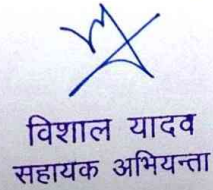 विशाल यादव
सहायक अभियन्ता